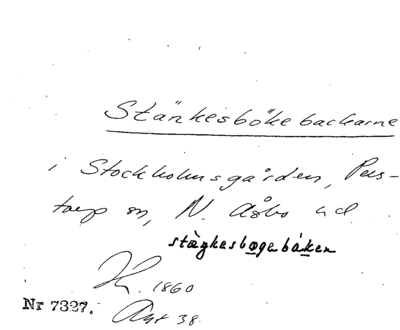 Stänkesböke backarne
i Stockholmsgården, Pers-
torp sn, N. Åsbo hd
stäŋkesbogebåken
1860
Nr 7327. Akt 38.